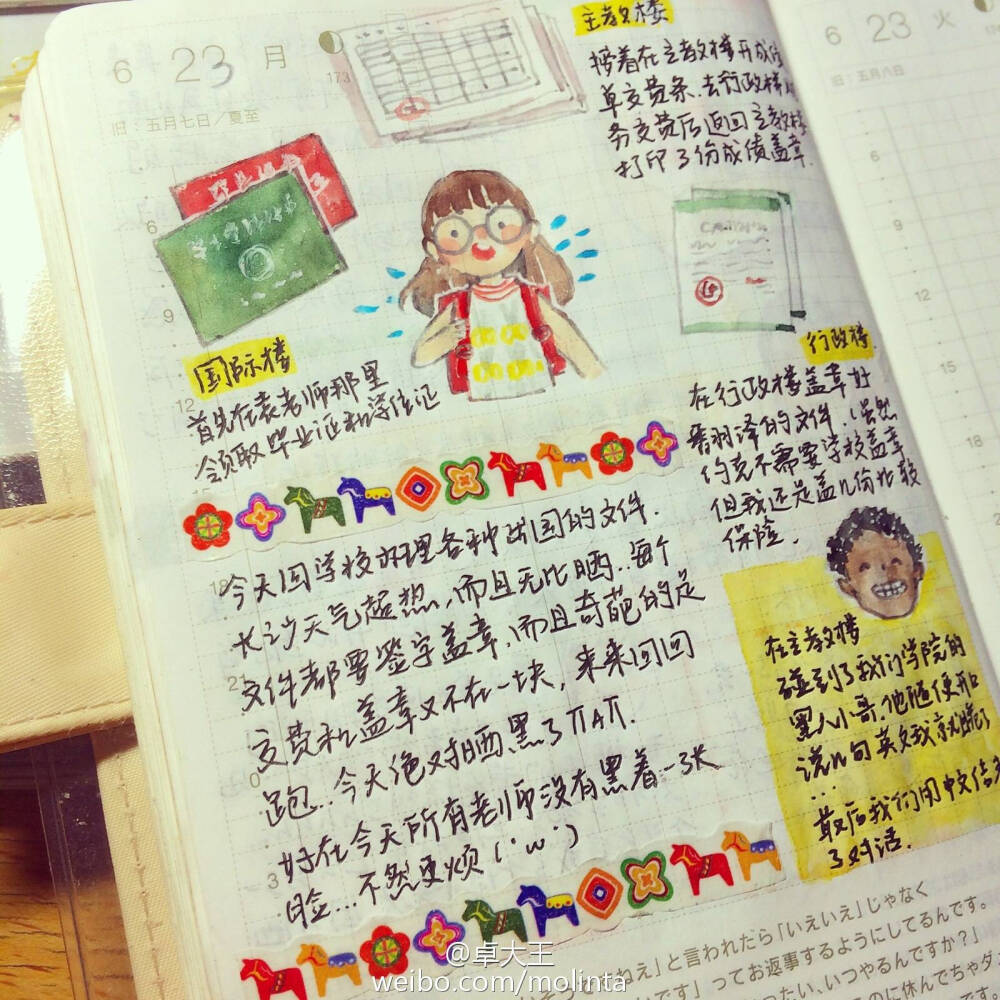 6 23 月
173
旧：五月七日／夏至
6 23 火
旧：五月八日
主教楼
接着在主教楼开成绩
单交费条、去行政楼
务交费后返回主教楼
打印3份成绩盖章.
国际楼
首先在袁老师那里
领取毕业证和学位证
行政楼
在行政楼盖章好
翻译的文件.(虽然
约克不需要学校盖章
但我还是盖几份比较
保险.
今天回学校办理各种出国的文件.
长沙天气超热,而且无比晒..每个
文件都要签字盖章.而且奇葩的是
交费和盖章又不在一块,来来回回
跑..今天绝对晒黑了TAT.
好在今天所有老师没有黑着一张
脸...不然更烦(·ω·)
在主教楼
碰到了我们学院的
黑人小哥.他随便开口
说几句英文我就晓了
...
最后我们用中文结束
了对话.
6
9
12
18
21
0
3
6
9
12
15
18
ねえ」と言われたら「いえいえ」じゃなく
です」ってお返事するようにしてるんです。
たい、いつやるんですか？」
のに休んでちゃダメ
@卓大王
weibo.com/molinta